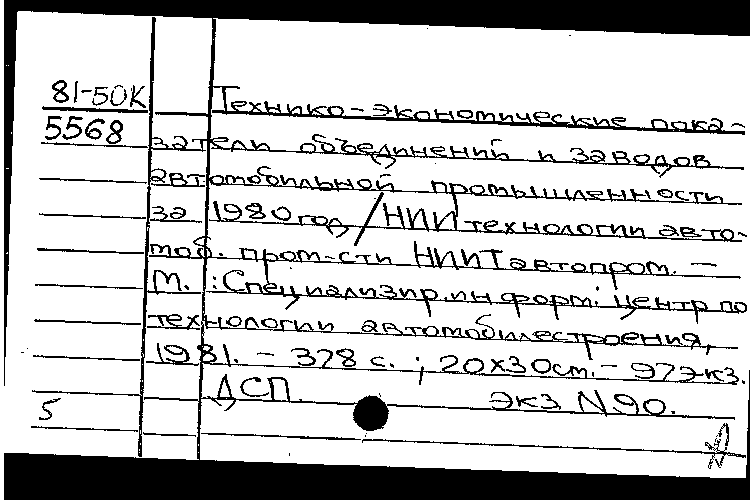 81-50К Технико-экономические пока-
5568 затели объединений и заводов
автомобильной промышленности
за 1980 год / НИИ технологии авто-
моб. пром-сти НИИТавтопром. –
М. : Специализир. информ. центр по
технологии автомобилестроения,
1981. – 378 с. ; 20х30 см. – 97 экз.
ДСП. экз. N 90.
5